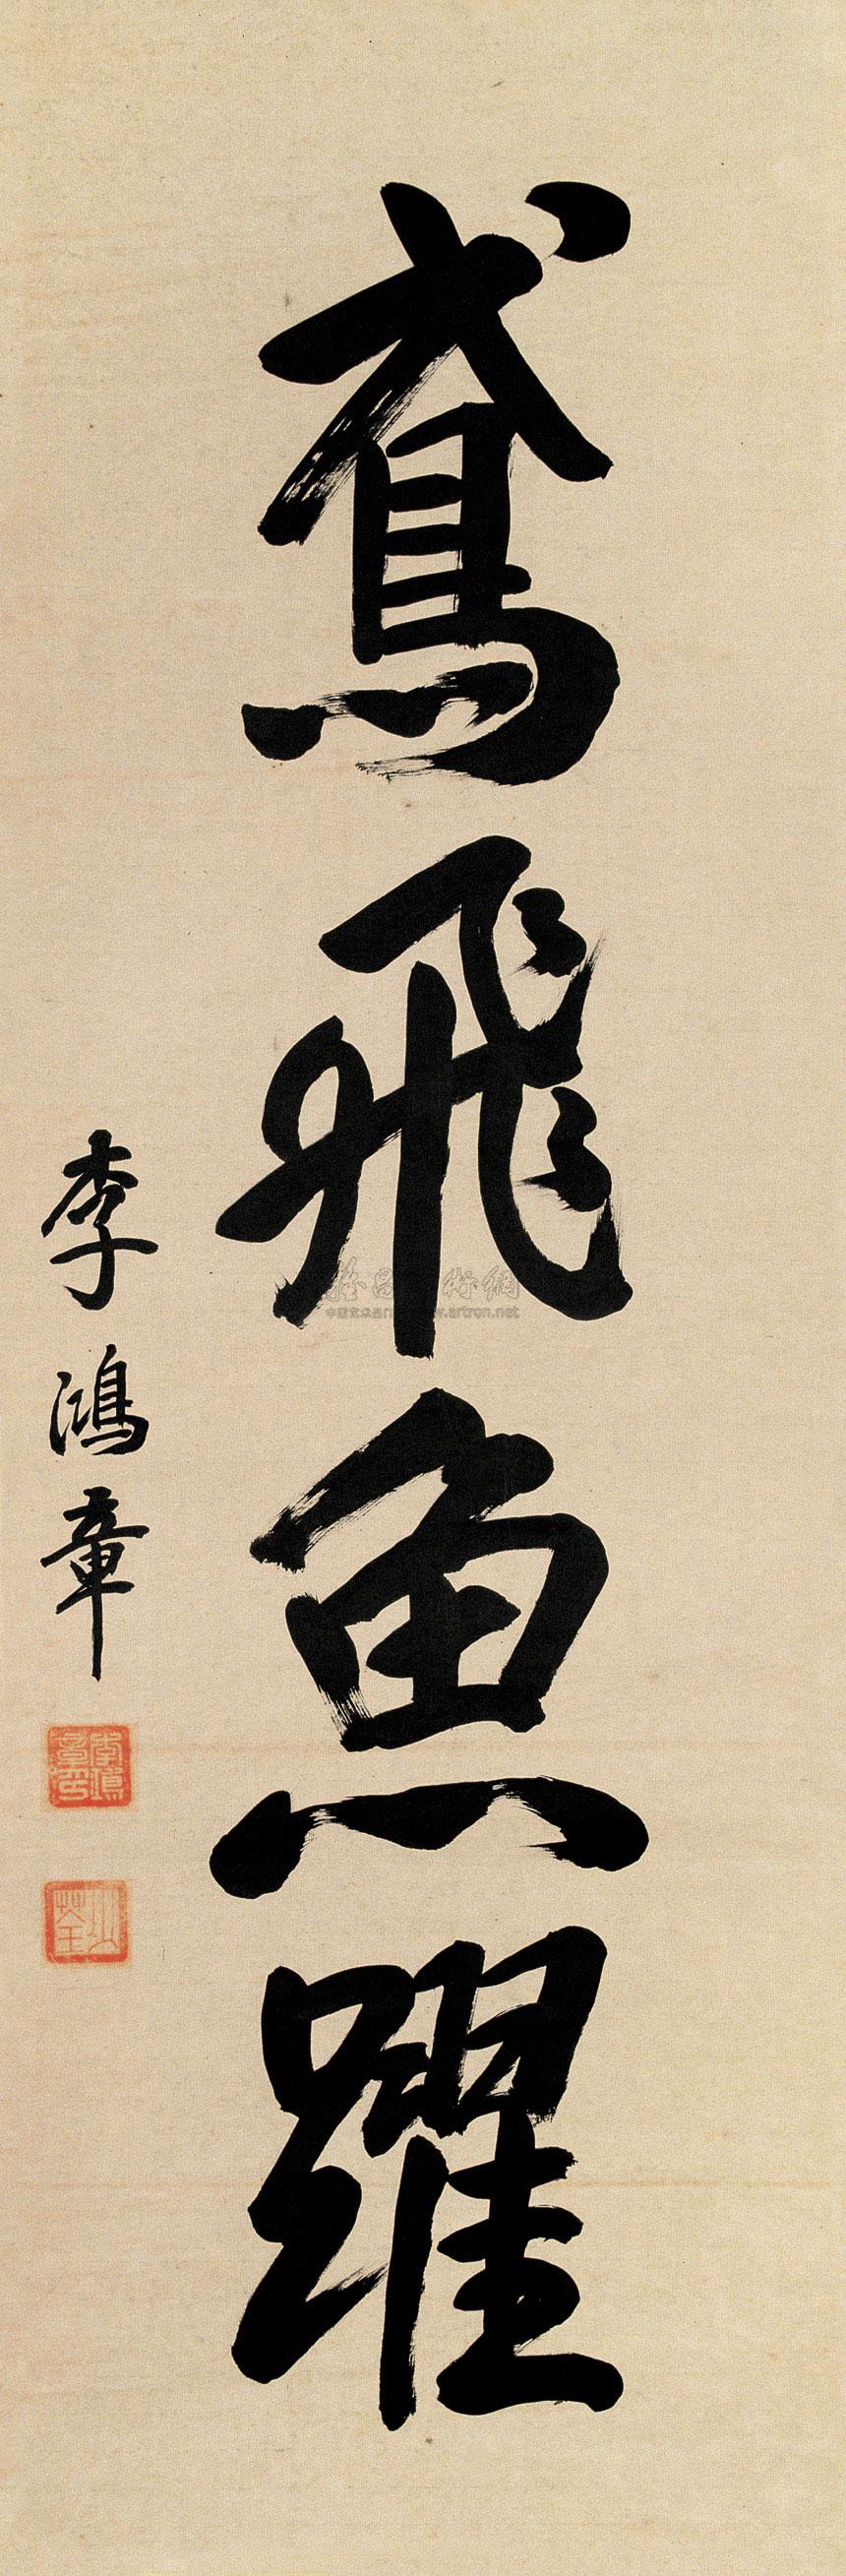 鳶飛魚躍
李鴻章
李鴻章印
少荃
www.artron.net